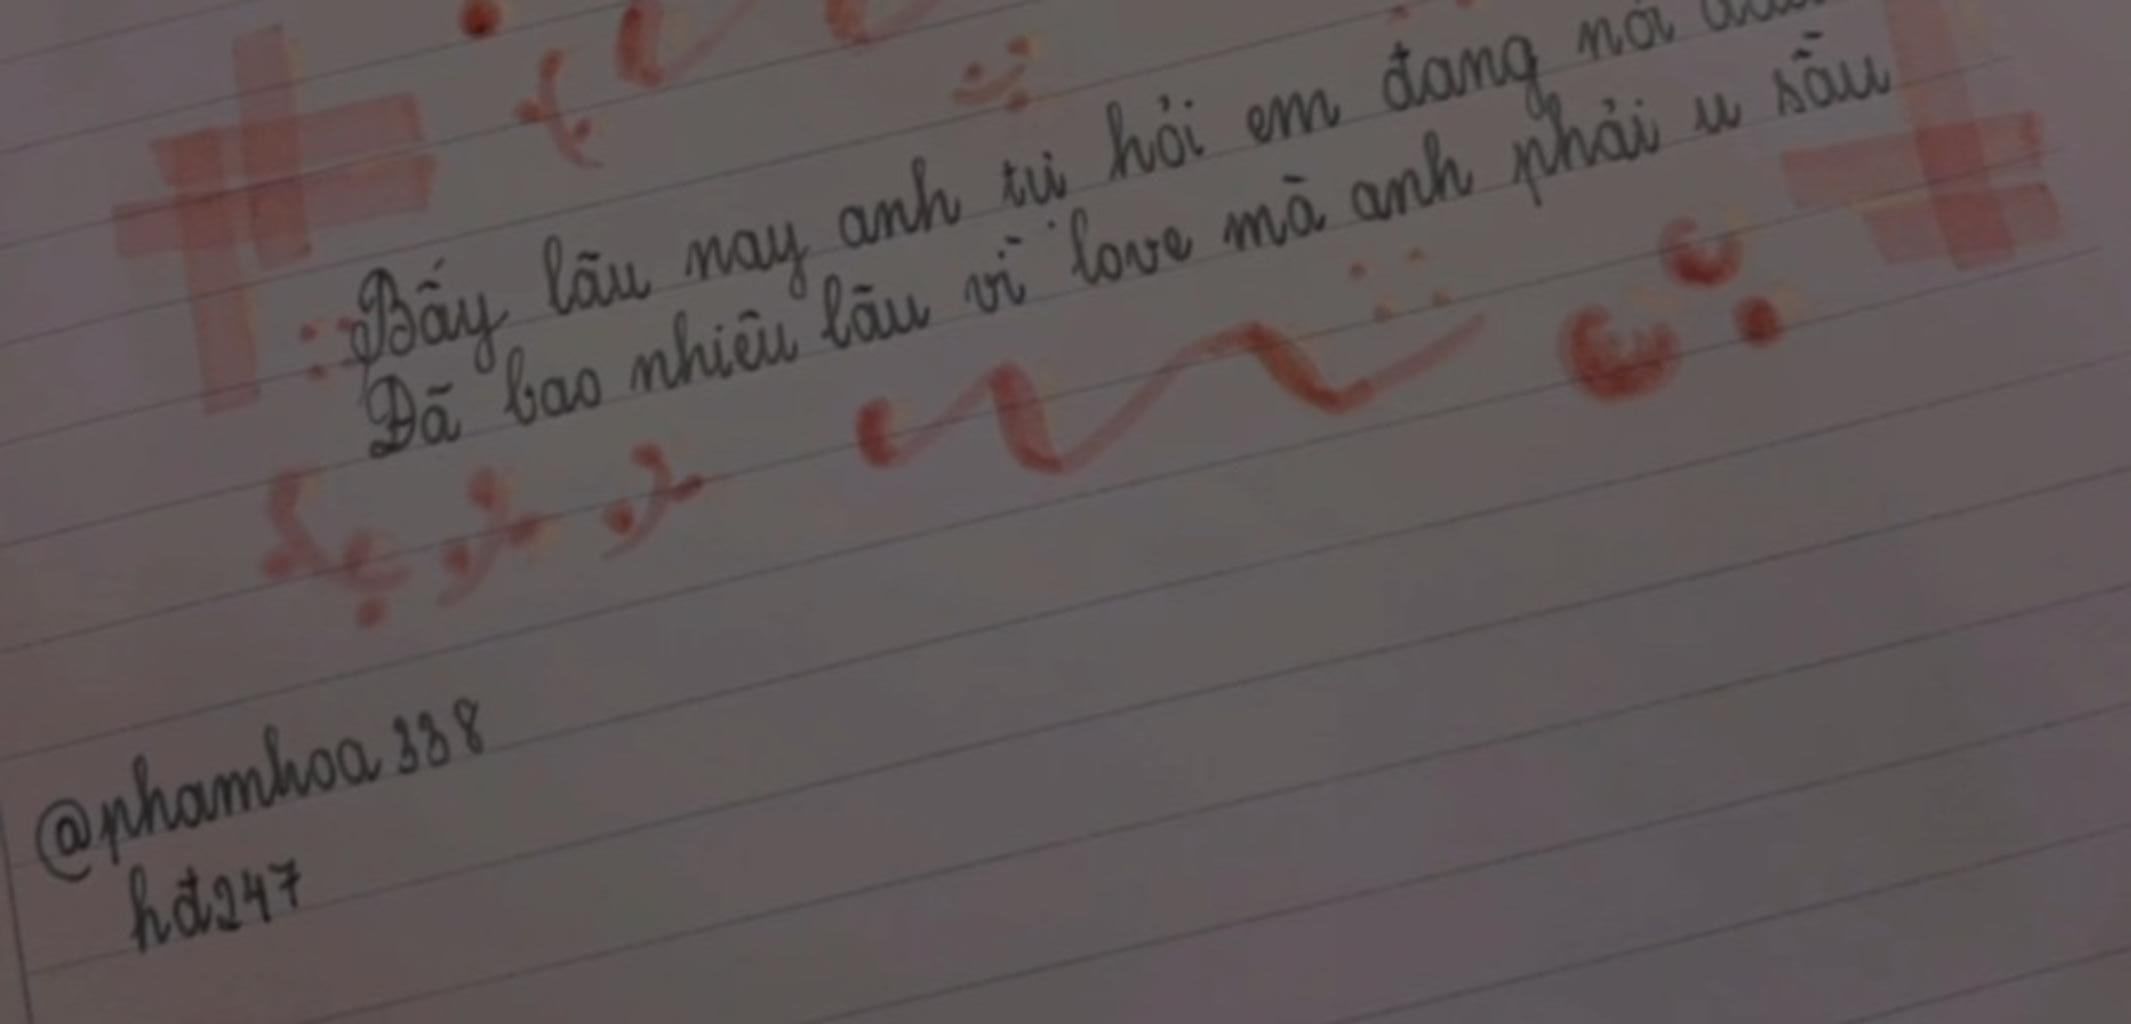 Bấy lâu nay anh tự hỏi em đang nơi
Đã bao nhiêu lâu vì love mà anh phải u sầu
@phamhoa338
hđ247